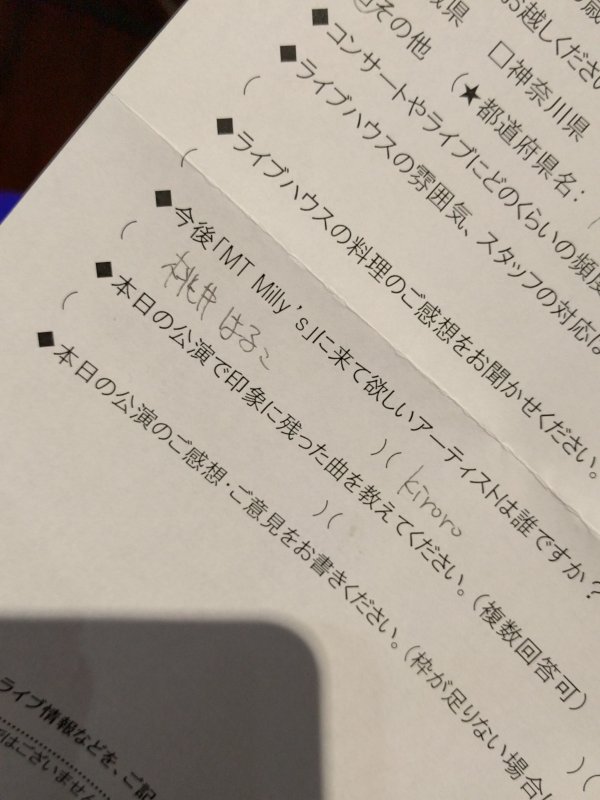 お越しください
城県 □神奈川県
その他 (★都道府県名：
■コンサートやライブにどのくらいの頻度
■ライブハウスの雰囲気、スタッフの対応は
(
■ライブハウスの料理のご感想をお聞かせください。
(
■今後「MT Milly's」に来て欲しいアーティストは誰ですか？
( 桃井はるこ )( kiroro
■本日の公演で印象に残った曲を教えてください。(複数回答可)
( )( )(
■本日の公演のご感想・ご意見をお書きください。(枠が足りない場合
ライブ情報などを、ご記
はございません